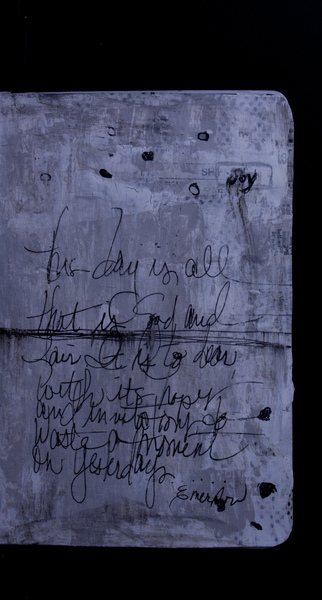 SH
This day is all
that is Good and
fair It is to dear,
with its hopes
and invitations to
waste a moment
on yesterdays
Emerson